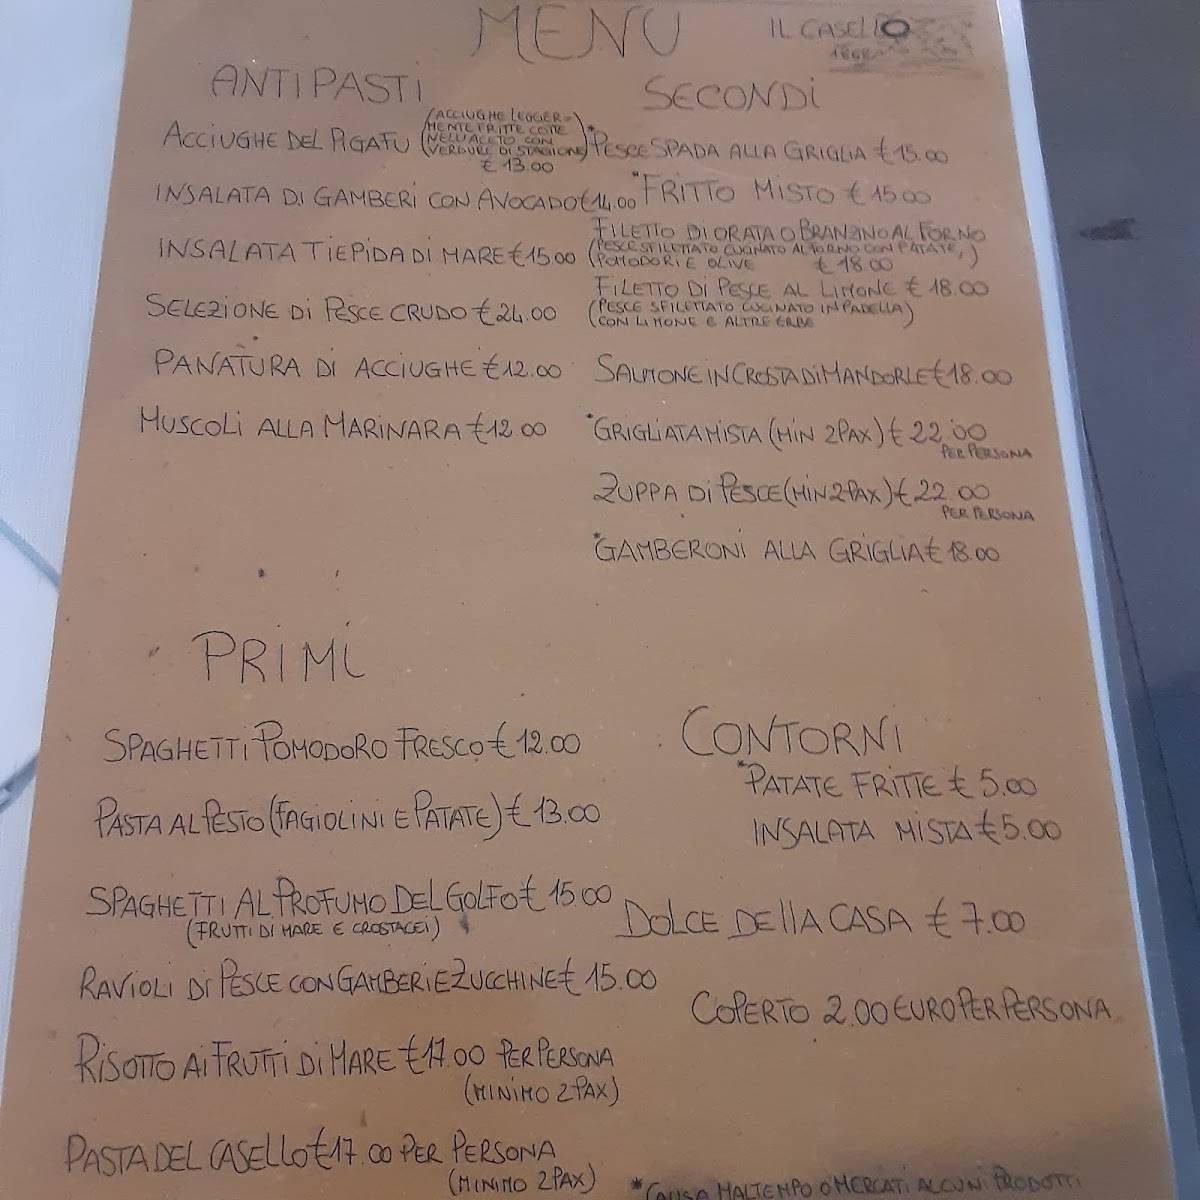 MENU
IL CASELLO
ANTIPASTI
ACCIUGHE DEL PIGAFU (ACCIUGHE LEGGER=
MENTE FRITTE COTTE
NELL'ACETO CON
VERDURE DI STAGIONE)
€ 13.00
INSALATA DI GAMBERI CON AVOCADO €14.00
INSALATA TIEPIDA DI MARE €15.00
SELEZIONE DI PESCE CRUDO €24.00
PANATURA DI ACCIUGHE €12.00
MUSCOLI ALLA MARINARA €12.00
SECONDI
*PESCE SPADA ALLA GRIGLIA €15.00
*FRITTO MISTO €15.00
FILETTO DI ORATA O BRANZINO AL FORNO
(PESCE SFILETTATO CUCINATO AL FORNO CON PATATE,
POMODORI E OLIVE) € 18.00
FILETTO DI PESCE AL LIMONE € 18.00
(PESCE SFILETTATO CUCINATO IN PADELLA
CON LIMONE E ALTRE ERBE)
SALMONE IN CROSTA DI MANDORLE €18.00
*GRIGLIATA MISTA (MIN 2PAX) € 22.00
PER PERSONA
ZUPPA DI PESCE (MIN 2PAX) €22.00
PER PERSONA
*GAMBERONI ALLA GRIGLIA € 18.00
PRIMI
SPAGHETTI POMODORO FRESCO €12.00
PASTA AL PESTO (FAGIOLINI E PATATE) € 13.00
SPAGHETTI AL PROFUMO DEL GOLFO € 15.00
(FRUTTI DI MARE E CROSTACEI)
RAVIOLI DI PESCE CON GAMBERI E ZUCCHINE € 15.00
RISOTTO AI FRUTTI DI MARE €17.00 PER PERSONA
(MINIMO 2PAX)
PASTA DEL CASELLO €17.00 PER PERSONA
(MINIMO 2PAX)
CONTORNI
*PATATE FRITTE € 5.00
INSALATA MISTA €5.00
DOLCE DELLA CASA € 7.00
COPERTO 2.00 EURO PER PERSONA
*CAUSA MALTEMPO O MERCATI ALCUNI PRODOTTI